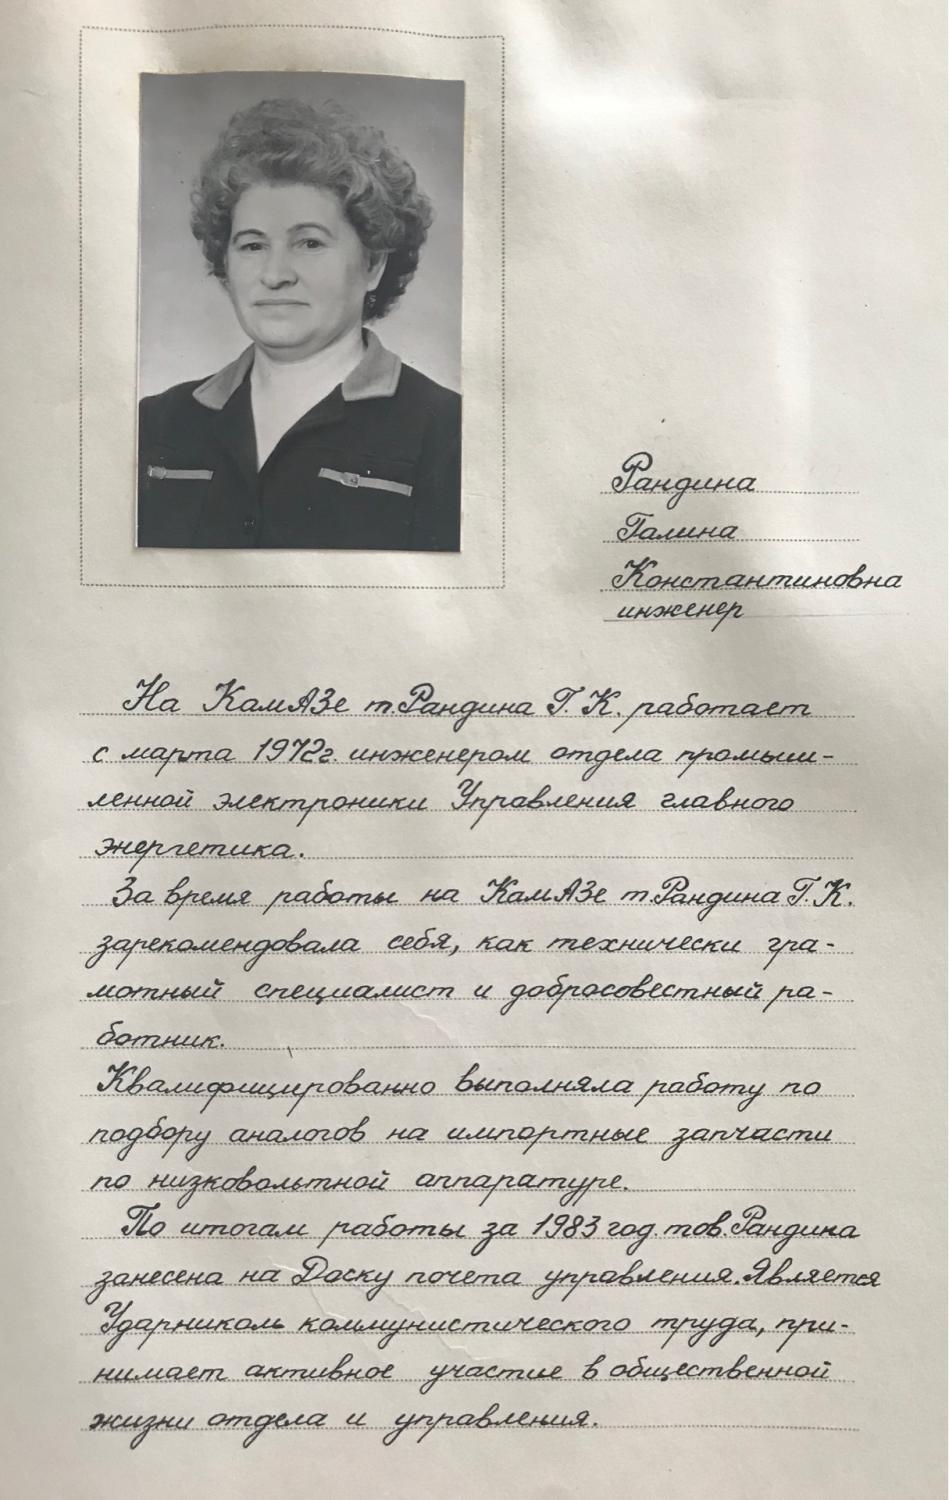 Рандина
Галина
Константиновна
инженер
На КамАЗе т.Рандина Г.К. работает
с марта 1972г. инженером отдела промыш-
ленной электроники Управления главного
энергетика.
За время работы на КамАЗе т.Рандина Г.К.
зарекомендовала себя, как технически гра-
мотный специалист и добросовестный ра-
ботник.
Квалифицированно выполняла работу по
подбору аналогов на импортные запчасти
по низковольтной аппаратуре.
По итогам работы за 1983 год тов.Рандина
занесена на Доску почета управления. Является
Ударником коммунистического труда, при-
нимает активное участие в общественной
жизни отдела и управления.